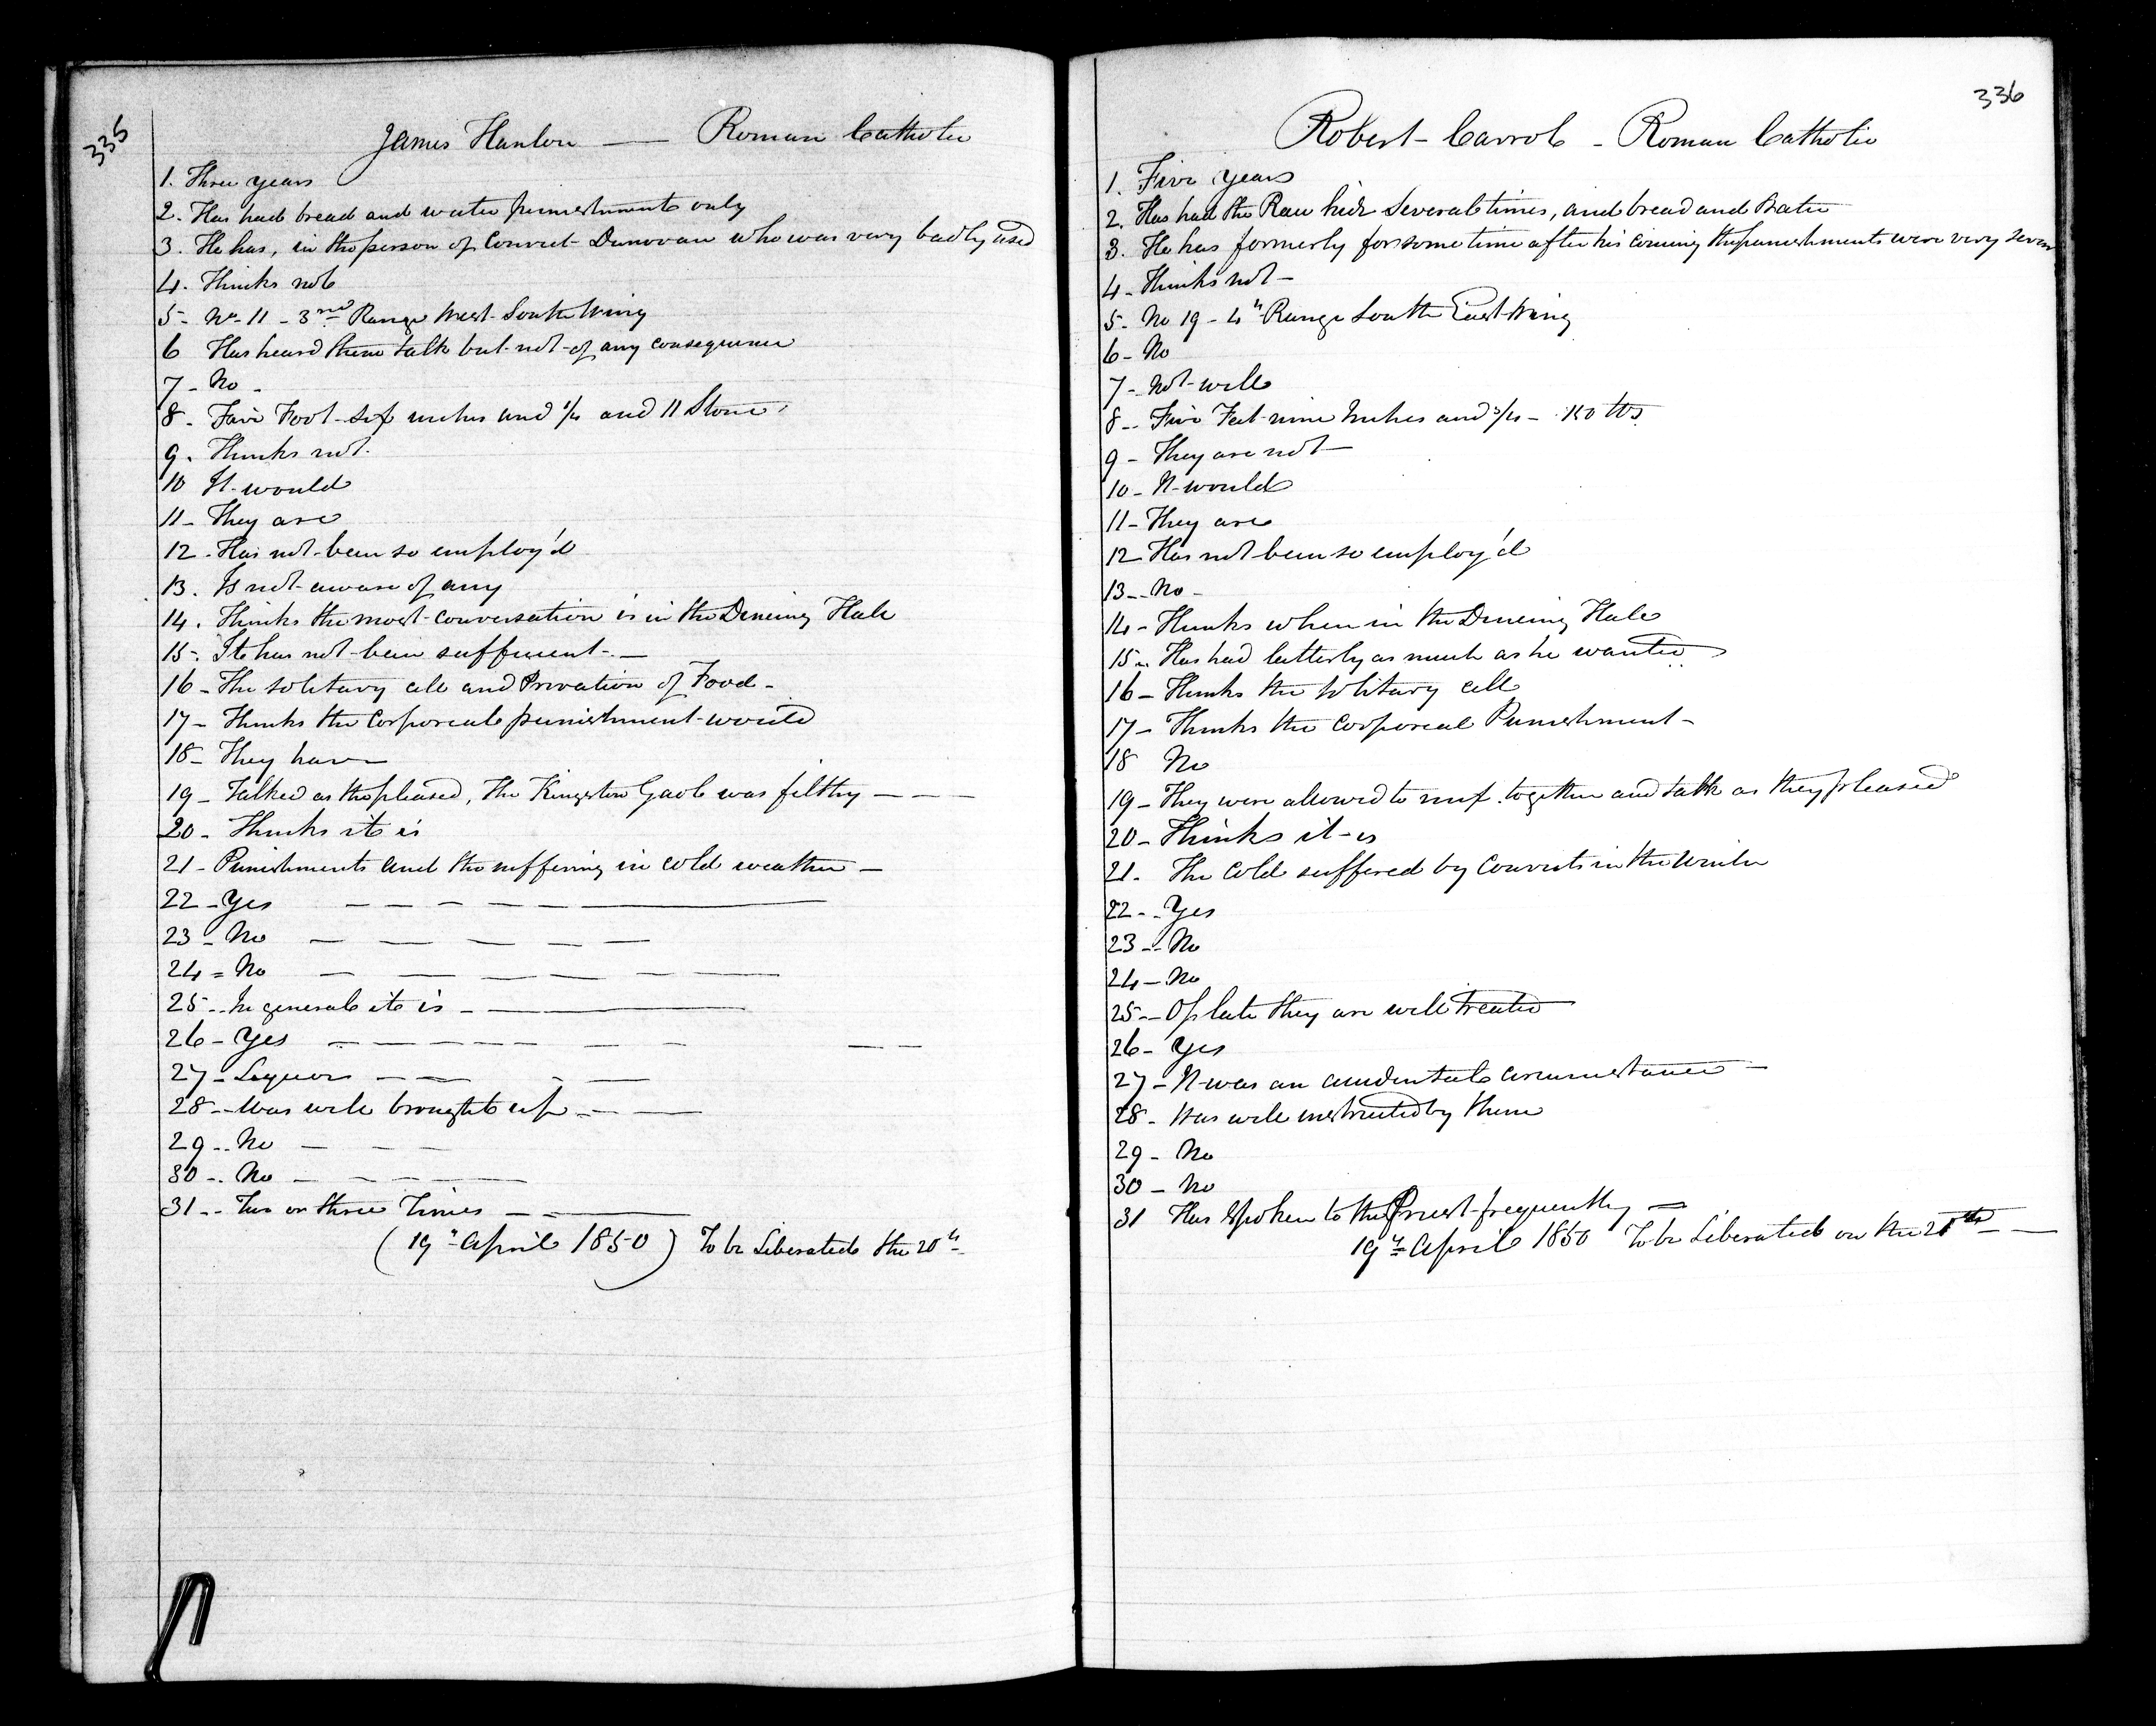 335
James Hanlon — Roman Catholic
1. Three years
2. Has had bread and water punishments only
3. He has, in the person of Convict Donovan who was very badly used
4. Thinks not
5- No- 11 - 3rd Range West South Wing
6 Has heard them talk but not of any consequence
7- No -
8. Five Foot six inches and 1/4 and 11 Stone
9. Thinks not.
10 It would
11- They are
12. Has not been so employ'd
13. Is not aware of any
14. Thinks the most conversation is in the Dineing Hall
15. It has not been sufficient. —
16- The solitary cell and Privation of Food -
17- Thinks the Corporeal punishment would
18- They have
19- Talked as they pleased, The Kingston Gaol was filthy — — —
20- Thinks it is
21- Punishments and the suffering in cold weather —
22- Yes — — — — —
23- No — — — — —
24= No — — — — —
25- In general it is - —
26- Yes — — — — — — — — —
27- Liquor — — - —
28- Was well brought up - — —
29.. No — — —
30.. No — — — —
31.. Two or three Times — - —
(19th April 1850) To be Liberated the 20th
336
Robert Carrol - Roman Catholic
1. Five years
2. Has had the Raw hide Several times, and bread and Water
3. He has formerly for some time after his coming the punishments were very severe
4- Thinks not -
5- No 19 - 4th Range South East Wing
6- No
7- Not well
8- Five Feet nine Inches and 3/4 - lbs
9- They are not —
10- It would
11- They are
12 Has not been so employ'd
13- No -
14- Thinks when in the Dineing Hall
15- Has had latterly as much as he wanted
16- Thinks the solitary cell
17- Thinks the corporeal Punishment -
18 No
19- They were allowed to mix together and talk as they pleased
20- Thinks it is
21. The Cold suffered by Convicts in the Winter
22- Yes
23- No
24- No
25- Of late they are well treated
26- Yes
27- It was an accidental circumstance —
28- Was well instructed by them
29- No
30- No
31 Has spoken to the Priest frequently —
19th April 1850 To be Liberated on the —